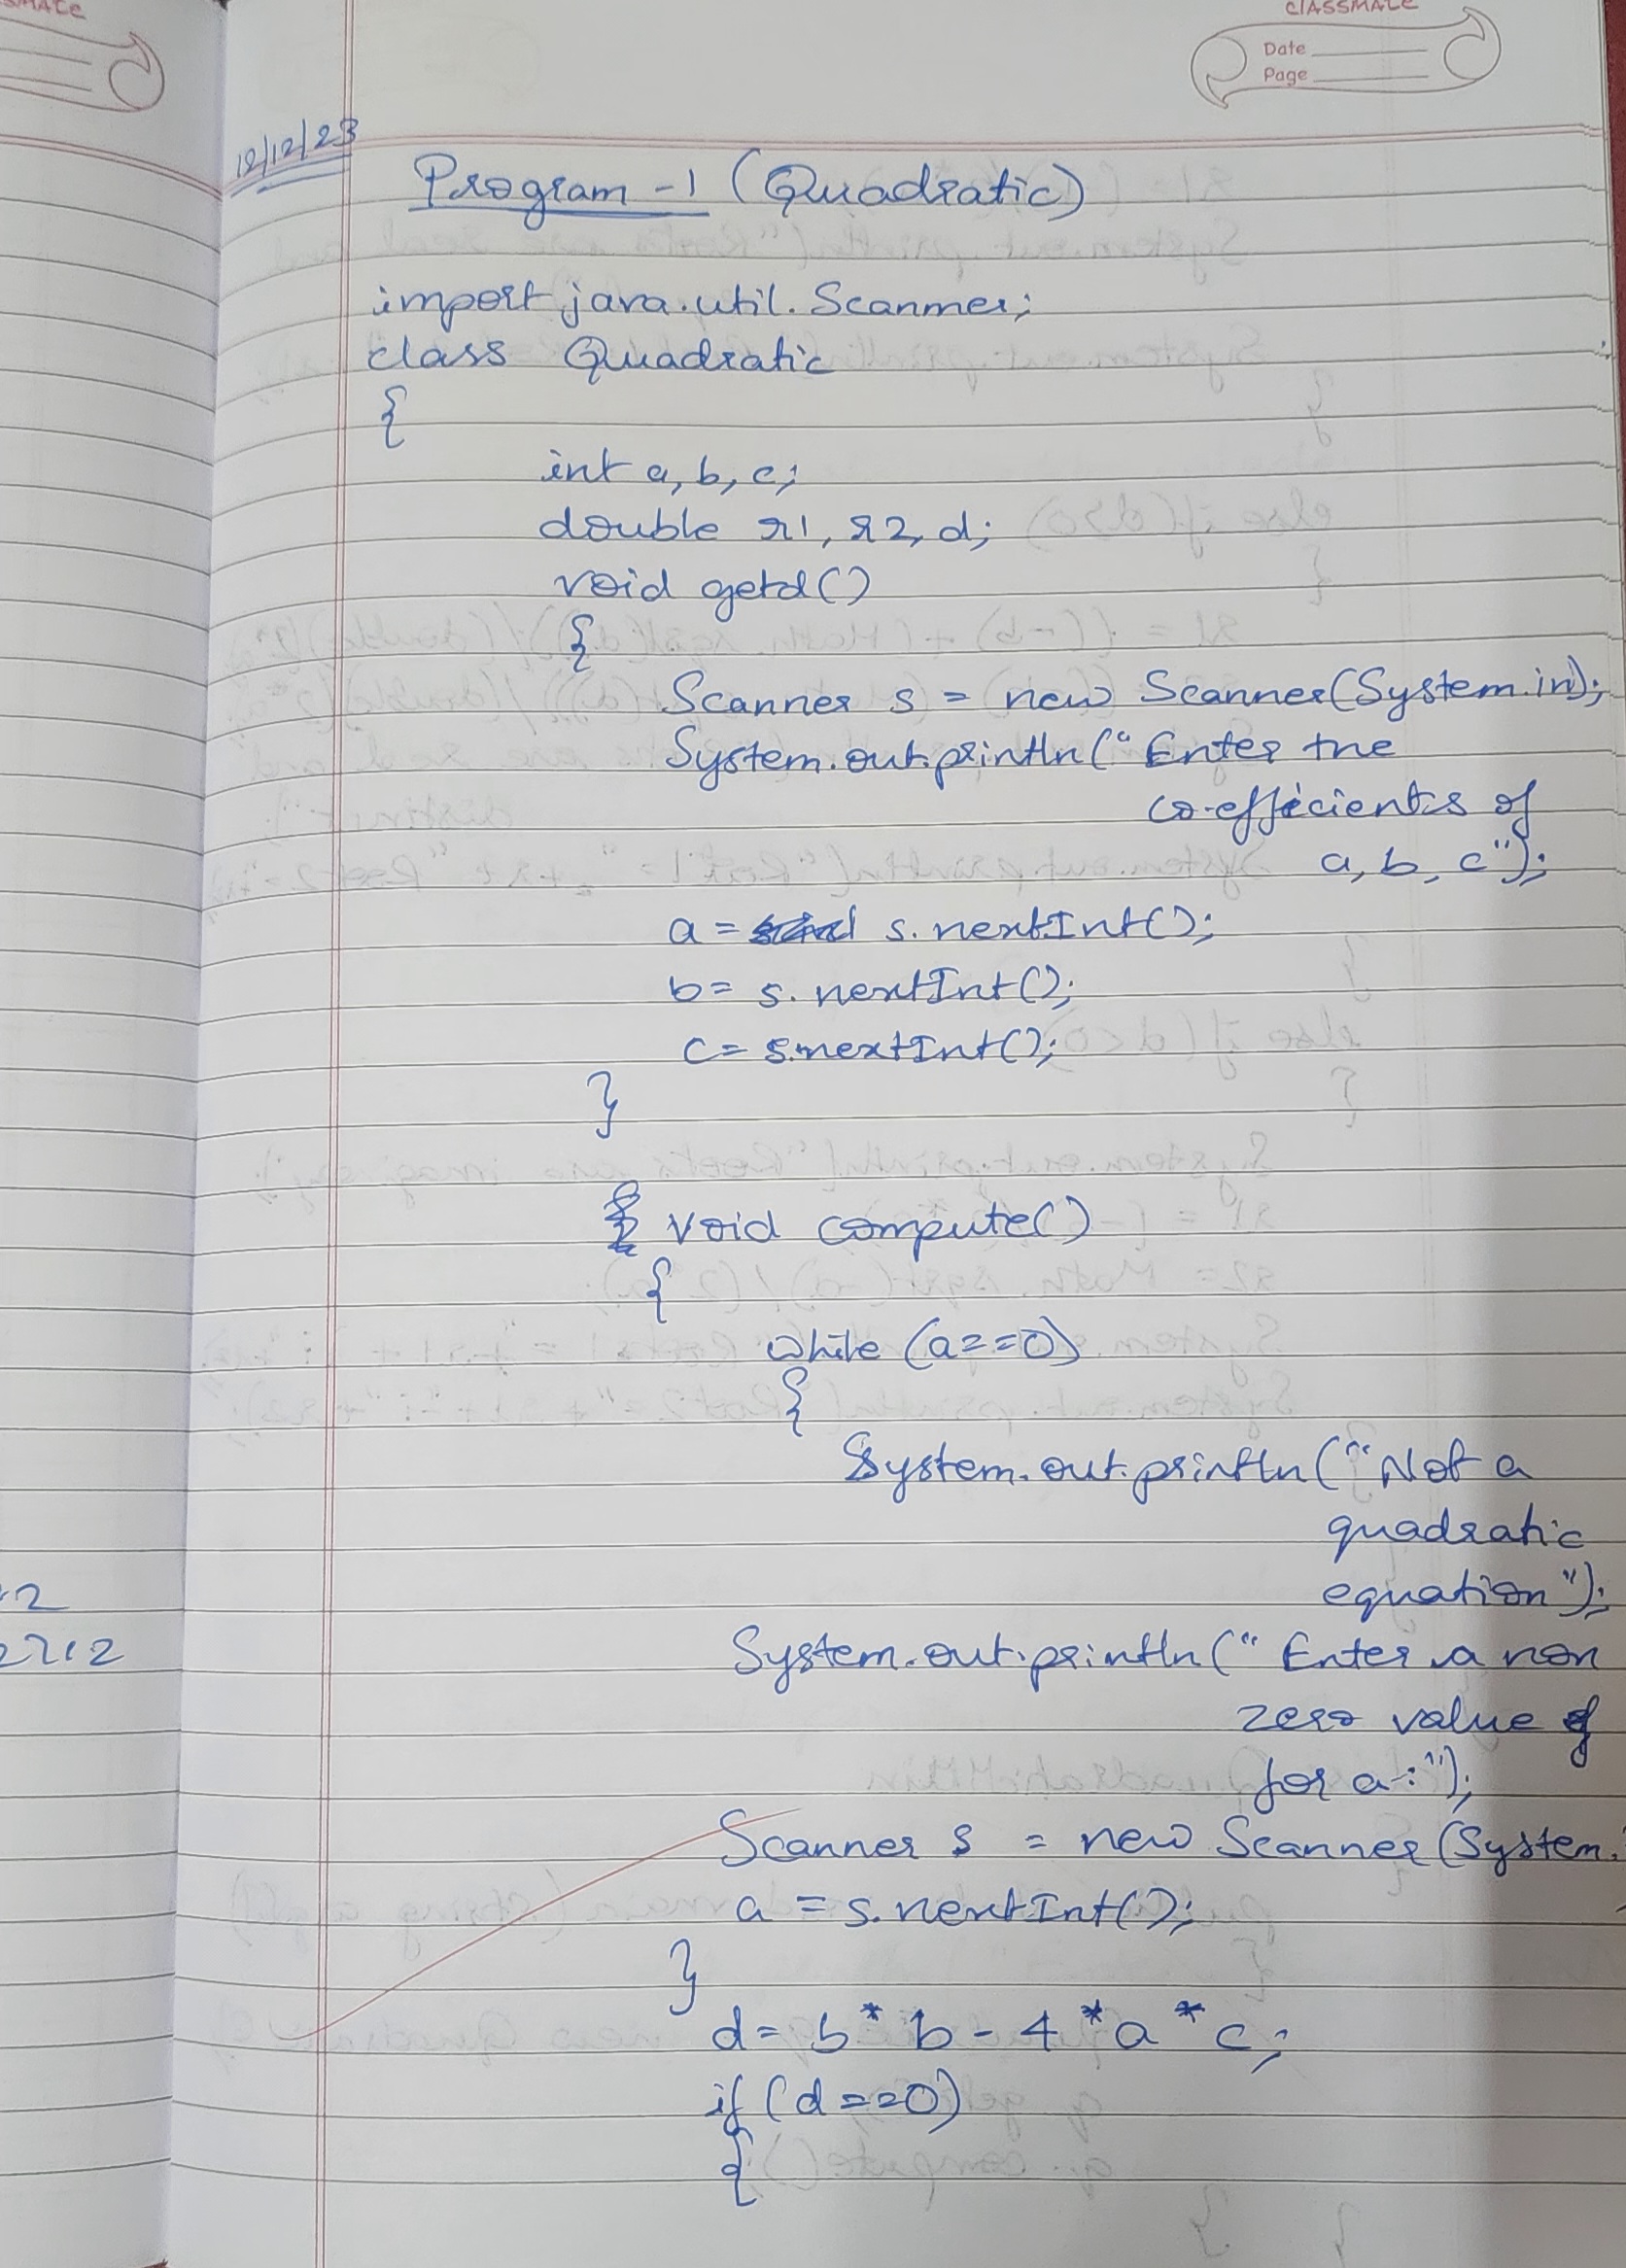 CLASSMATE
Date
Page
12/12/23
Program-1 (Quadratic)
import java.util.Scanner;
class Quadratic
{
int a, b, c;
double r1, r2, d;
void getd()
{
Scanner s = new Scanner(System.in);
System.out.println("Enter the
co-efficients of
a, b, c");
a = s.nextInt();
b = s.nextInt();
c = s.nextInt();
}
void compute()
{
while (a==0)
{
System.out.println("Not a
quadratic
equation");
System.out.println("Enter a non
zero value
for a:");
Scanner s = new Scanner(System.
a = s.nextInt();
}
d = b*b-4*a*c;
if (d==0)
{